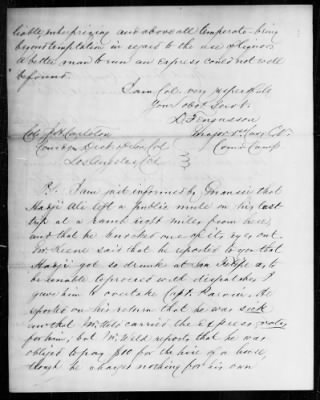 liable enterprizing and above all temperate – being
beyond temptation in regard to the use of liquors
A better man to run an express could not well
be found.
I am Col. very respectfully
Your obdt Servt.
D. Fergusson
Col. J. H. Carleton Major 1st Cavy C.V.
Comdg Camp
Los Angeles Cal
P.S. I am just informed by that
Hadji Ali left a public mule on his last
trip at a Ranch eight miles from here,
and that he knocked one of its eyes out.
Mr Keene said that he reported to you that
Hadji got so drunk at San Felipe as to
be unable to proceed with despatches I
give him to overtake Capt. He
reported on his return that he was sick
and that Mr. Weld carried the Express
for him, but Mr. Weld reports that he was
obliged to pay $10 for the hire of a horse,
though he charged nothing for his own